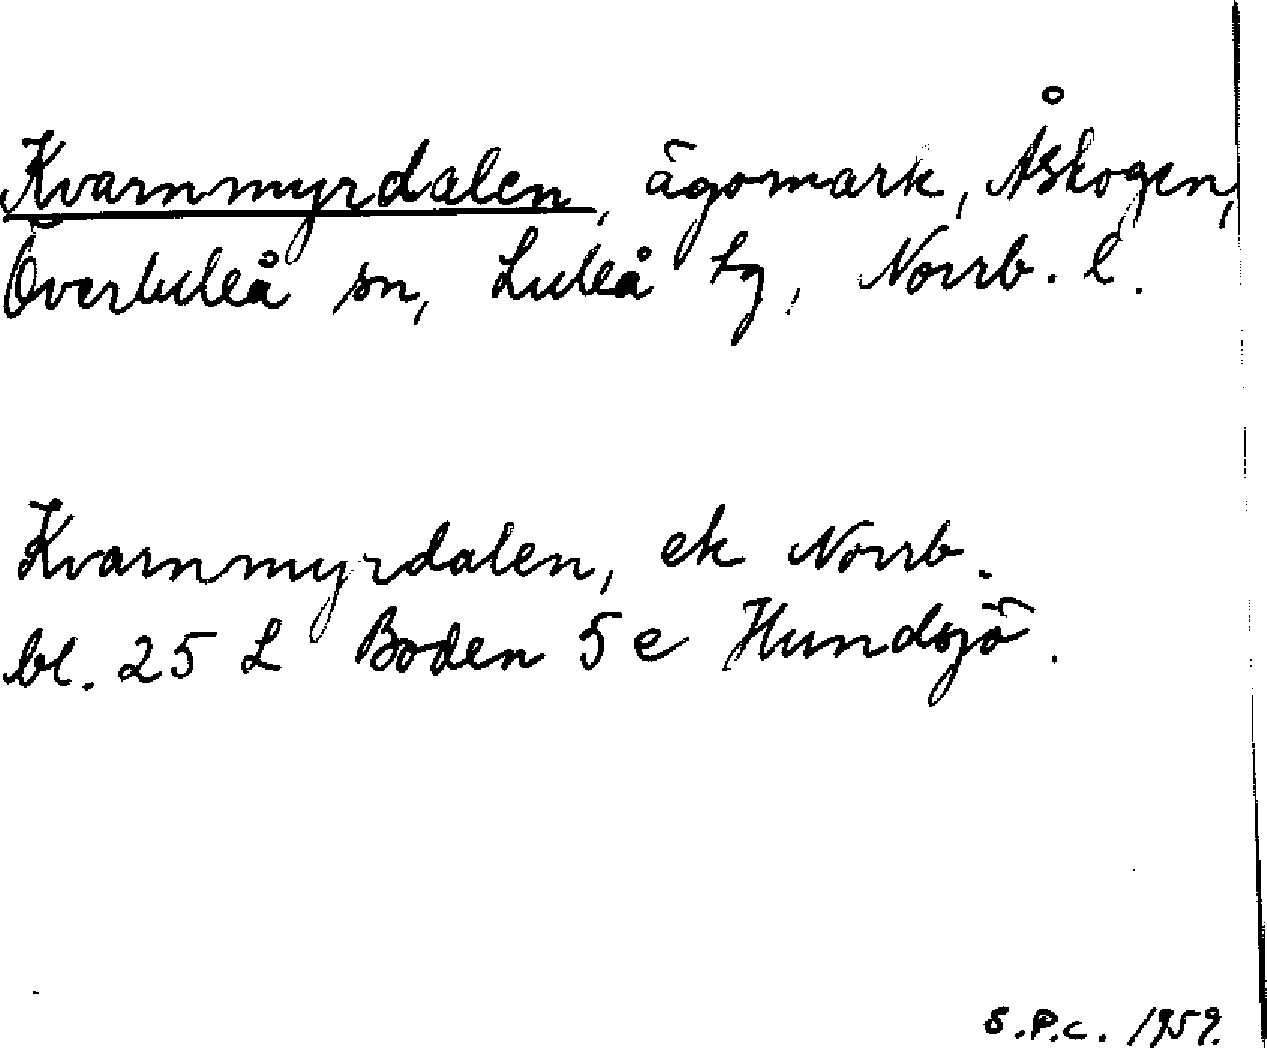 Kvarnmyrdalen, ägomark, Åskogen,
Överluleå sn, Luleå tg, Norrb. l.
Kvarnmyrdalen, ek Norrb.
bl. 25 L Boden 5 e Hundsjö.
S.P.C. 1959.